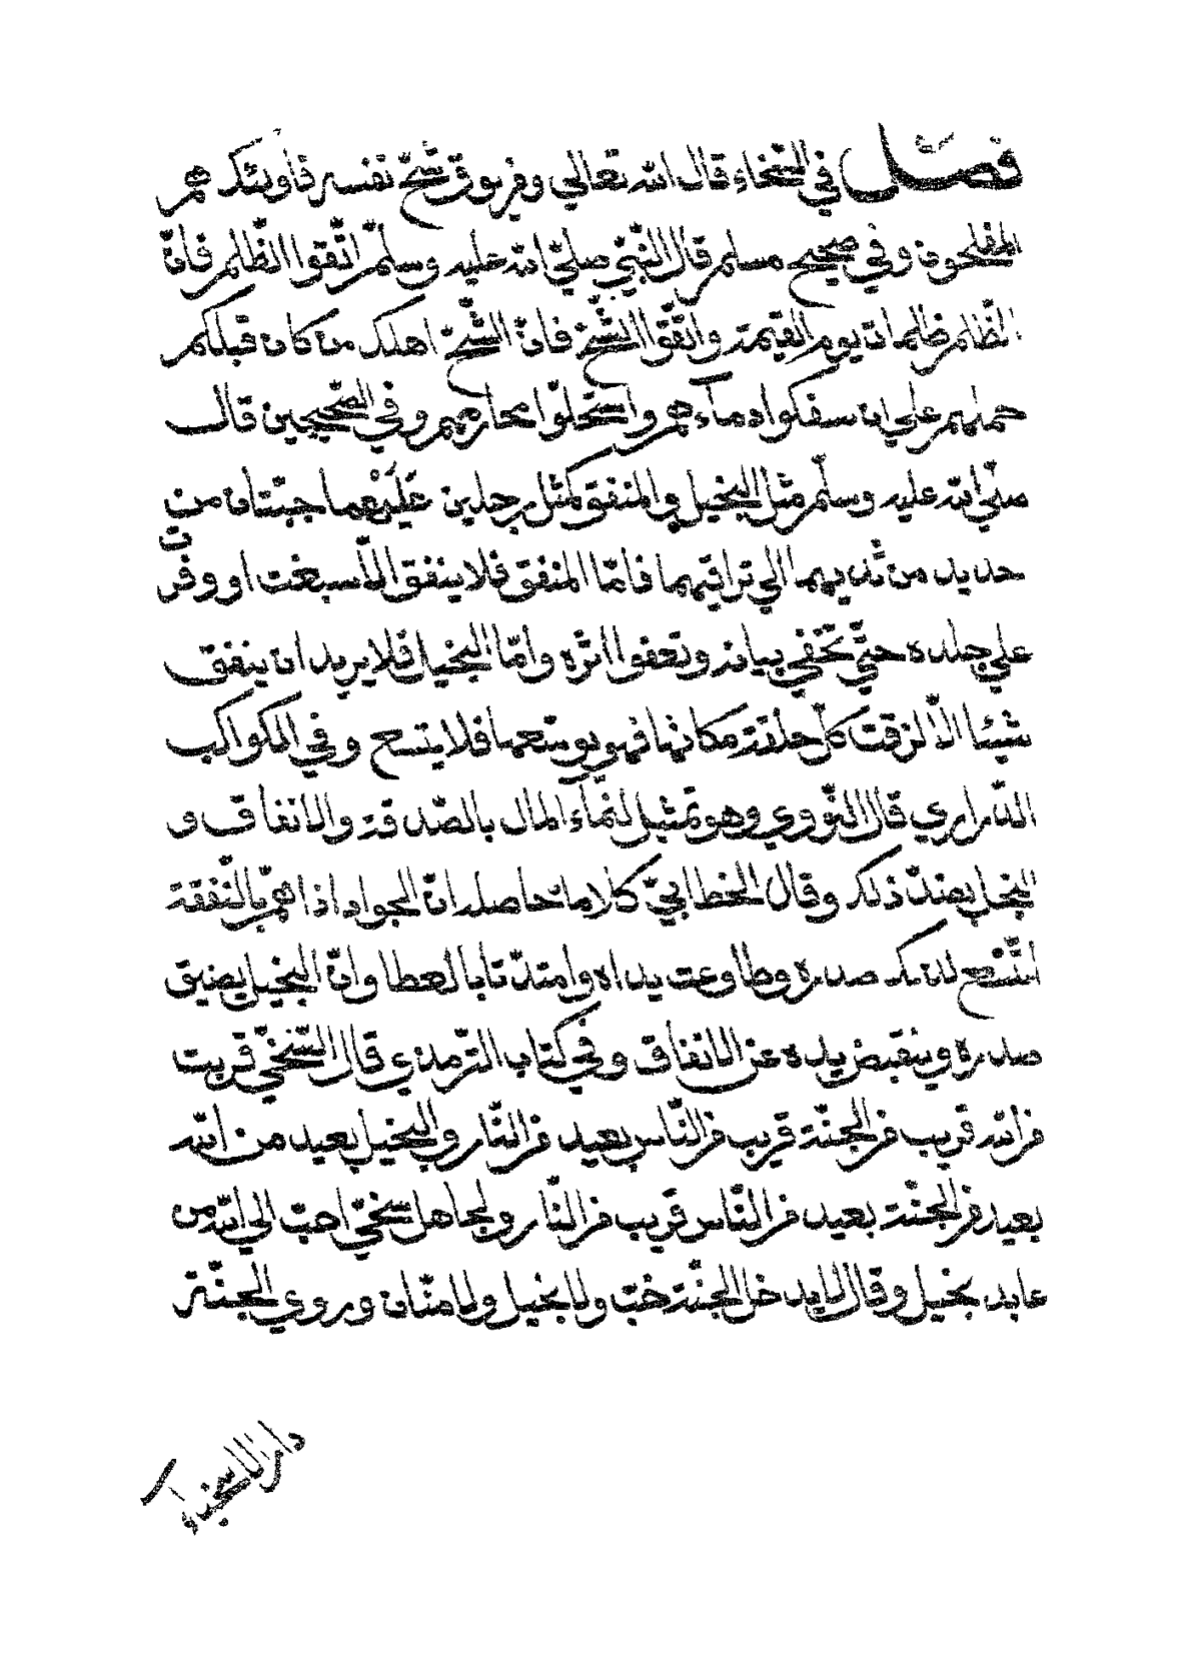 فصل في السّخاء قال الله تعالي ومن يوق شحّ نفسه فأوليئك هم
المفلحون وفي صحيح مسلم قال النّبيّ صليّ الله عليه وسلّم اتّقوا الظّلم فانّ
الظّلم ظلمات يوم القيمة واتّقوا الشّحّ فانّ الشّحّ اهلك من كان قبلكم
حملهم علي ان سفكوا دمآءهم واستحلّوا محارمهم وفي الصّحيحين قال
صليّ الله عليه وسلّم مثل البخيل والمنفق كمثل رجلين عَلَيْهما جبّتان من
حديد من ثديهما الي تراقيهما فامّا المنفق فلا ينفق الّا سبغت او وفرت
علي جلده حتيّ تخفي بيانه وتعفوا اثره وامّا البخيل فلا يريد ان ينفق
شيئا الّا لزقت كلّ حلقة مكانها فهو يوسّعها فلا يتسع وفي الكواكب
الدّراري قال النّووي وهو تمثيل لنمآء المال بالصّدقة والانفاق و
البخل بضدّ ذلك وقال الخطابيّ كلاما حاصله انّ الجواد اذا همّ بالنّفقة
اتّسع لذلك صدره وطاوعت يداه وامتدّتا بالعطا وانّ البخيل يضيق
صدره وينقبض يده عن الانفاق وفي كتاب الترمذي قال السّخيّ قريب
من الله قريب من الجنّة قريب من النّاس بعيد من النّار والبخيل بعيد من الله
بعيد من الجنّة بعيد من النّاس قريب من النّار ولجاهل سخيّ احبّ الي الله من
عابد بخيل وقال لا يدخل الجنّة خبّ ولا بخيل ولا منّان وروي الجنّة
دار الاسخياء